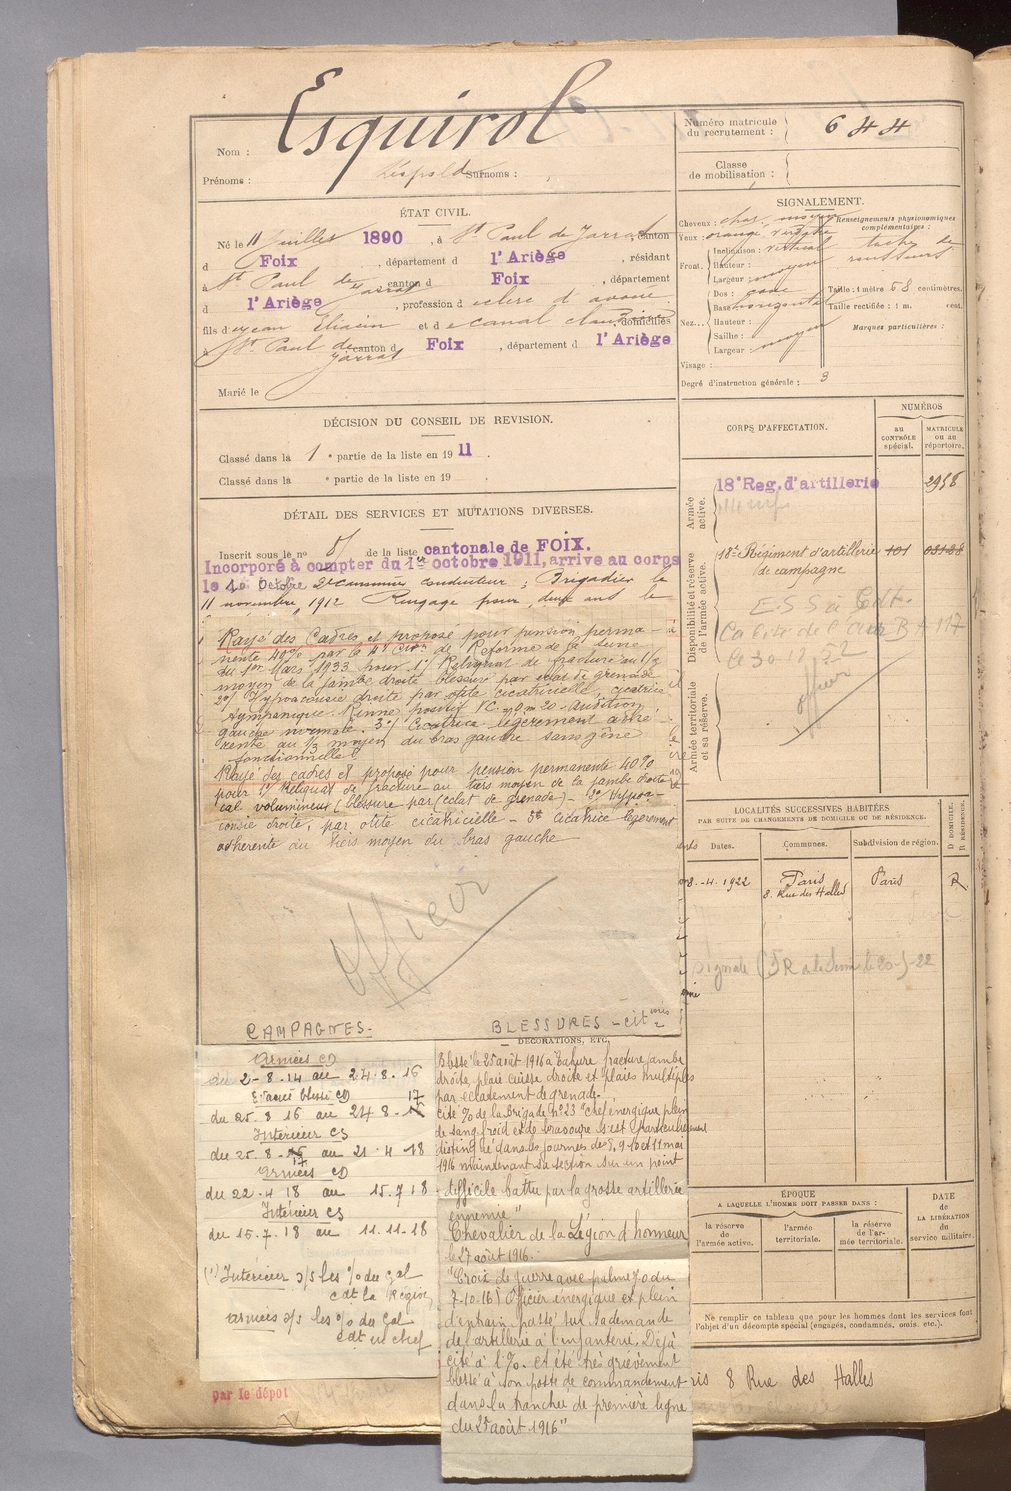 Nom : Esquirol
Prénoms : Léopold Surnoms :
ÉTAT CIVIL.
Né le 11 Juillet 1890, à St Paul de Jarrat, canton
d Foix, département d l'Ariège, résidant
à St Paul de Jarrat canton d Foix, département
d l'Ariège, profession d clerc d'avoué
fils d jean et d canal domiciliés
à St Paul de Jarrat canton d Foix, département d l'Ariège
Marié le
DÉCISION DU CONSEIL DE REVISION.
Classé dans la 1 e partie de la liste en 1911.
Classé dans la e partie de la liste en 19
DÉTAIL DES SERVICES ET MUTATIONS DIVERSES.
Inscrit sous le no de la liste cantonale de FOIX.
Incorporé à compter du 1er octobre 1911, arrive au corps
le 10 Octobre 2e canonnier conducteur ; Brigadier le
11 novembre 1912 Rengagé pour deux ans le
Rayé des Cadres et proposé pour pension perma-
nente 40% par la 4e Cion de Réforme de la Seine
du 1er Mars 1933 pour 1°/ Reliquat de fracture au 1/3
moyen de la jambe droite blessure par éclat de grenade
2°/ Hypoacousie droite par otite cicatricielle, cicatrice
tympanique. Rinne positif VC = 0m20 - Audition
gauche normale. 3°/ Cicatrice légèrement adhé-
rente au 1/3 moyen du bras gauche sans gêne
fonctionnelle.
Rayé des cadres et proposé pour pension permanente 40%
pour 1°/ Reliquat de fracture au tiers moyen de la jambe droite
cal volumineux (blessure par éclat de grenade) - 2°/ Hypoa-
cousie droite, par otite cicatricielle - 3° cicatrice légèrement
adhérente du tiers moyen du bras gauche
officier
CAMPAGNES -
Armées CD
du 2-8-14 au 24.8.16
Evacué blessé CD
du 25.8 16 au 24 8 - 17
Intérieur CS
du 25.8.17 au 21.4.18
Armées CD
du 22.4 18 au 15.7 18
Intérieur CS
du 15.7.18 au 11.11.18
(1) Intérieur s/s les % du Gal
cdt la Région
armées s/s les % du Gal
cdt en chef
par le dépôt
BLESSURES - citons
DÉCORATIONS, ETC.
Blessé le 25 août 1916 à Tahure fracture jambe
droite, plaie cuisse droite et plaies multiples
par éclatement de grenade.
Cité % de la Brigade n° 23 "chef énergique plein
de sang froid et de bravoure s'est particulièrement
distingué dans les journées des 8, 9 10 et 11 mai
1916 maintenant sa section sur un point
difficile battu par la grosse artillerie
ennemie"
Chevalier de la Légion d'honneur
le 27 août 1916.
"Croix de guerre avec palme J.O du
7-10-16) Officier énergique et plein
d'entrain passé sur sa demande
de l'artillerie à l'infanterie. Déjà
cité à l'%. A été très grièvement
blessé à son poste de commandement
dans la tranchée de première ligne
du 25 août 1916"
Numéro matricule du recrutement : 644
Classe de mobilisation :
SIGNALEMENT.
Cheveux : chat. moyen
Yeux : orangé verdâtre
Front. Inclinaison : vertical
Hauteur :
Largeur : moyen
Nez... Dos : cave
Base : horizontal
Hauteur :
Saillie :
Largeur : moyen
Visage :
Renseignements physionomiques complémentaires :
taches de rousseurs
Taille : 1 mètre 58 centimètres.
Taille rectifiée : 1 m. cent.
Marques particulières :
Degré d'instruction générale : 3
CORPS D'AFFECTATION.
NUMÉROS
AU CONTRÔLE SPÉCIAL.
MATRICULE OU AU RÉPERTOIRE.
Armée active.
18e Reg. d'artillerie 2958
Disponibilité et réserve de l'armée active.
18e Régiment d'artillerie de campagne
le 30.12.52
officier
Armée territoriale et sa réserve.
LOCALITÉS SUCCESSIVES HABITÉES
PAR SUITE DE CHANGEMENTS DE DOMICILE OU DE RÉSIDENCE.
Dates. Communes. Subdivision de région. D DOMICILE. R RÉSIDENCE.
8.-4.1922 Paris 8. Rue des Halles Paris R
ÉPOQUE
A LAQUELLE L'HOMME DOIT PASSER DANS :
la réserve de l'armée active. l'armée territoriale. la réserve de l'armée territoriale.
DATE de LA LIBÉRATION du service militaire.
Ne remplir ce tableau que pour les hommes dont les services font
l'objet d'un décompte spécial (engagés, condamnés, omis, etc.).
ris 8 Rue des Halles